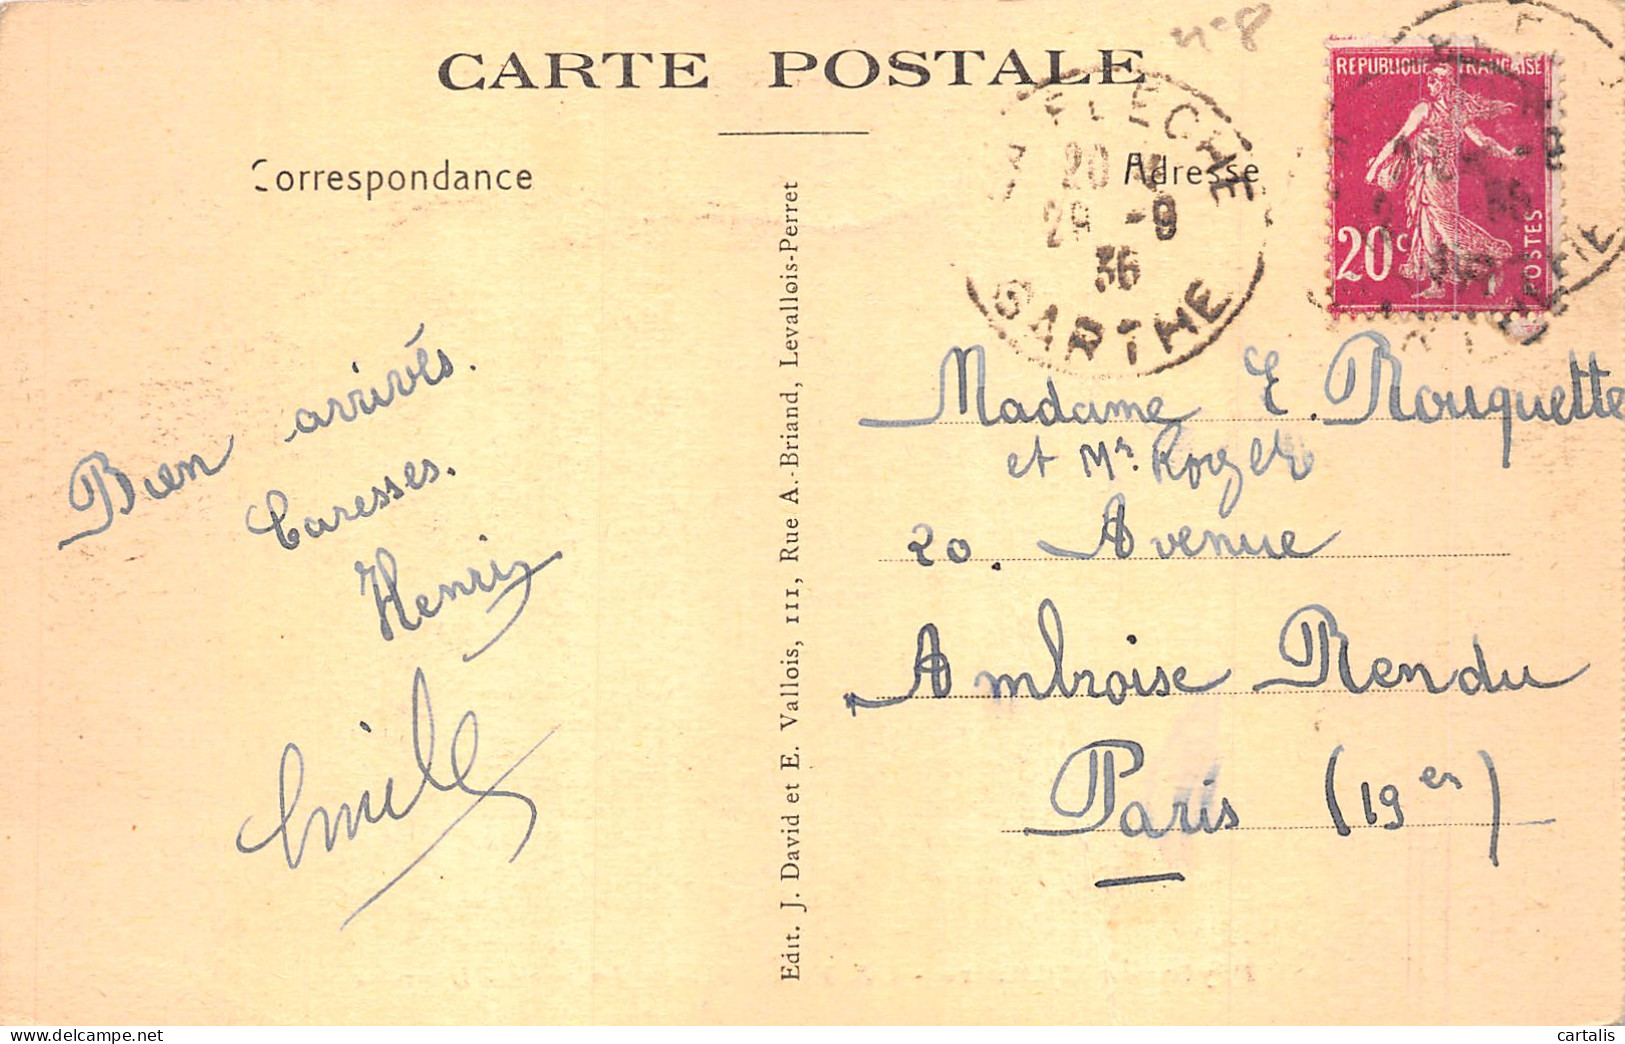 n°8
CARTE POSTALE
Correspondance
Adresse
FLECHE
20
28 -9
36
SARTHE
REPUBLIQUE FRANÇAISE
20c
POSTES
Bien arrivés.
Caresses.
Henri
Emile
Edit. J. David et E. Vallois, 111, Rue A.-Briand, Levallois-Perret
Madame E. Rouquette
et Mr. Roger
20. Avenue
Ambroise Rendu
Paris (19en)
cartalis